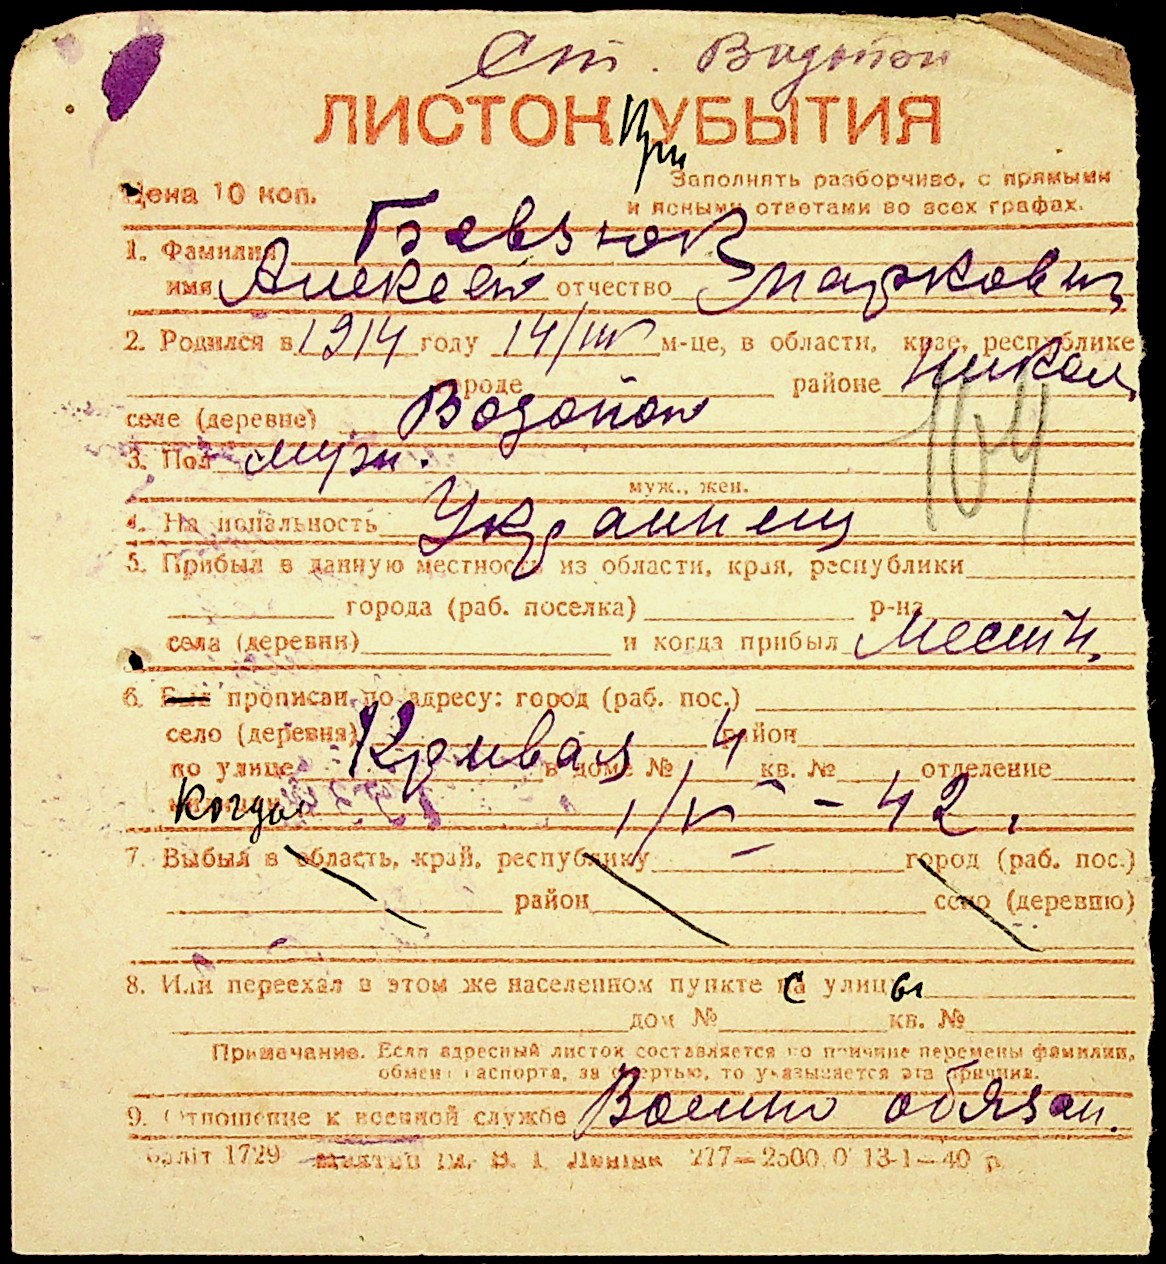 Ст. Водопой
ЛИСТОК При УБЫТИЯ
Цена 10 коп.
Заполнять разборчиво, с прямыми
и ясными ответами во всех графах.
1. Фамилия Бевзюк
имя Алексей отчество Маркович
2. Родился в 1914 году 14/III м-це, в области, крае, республике
городе районе Никол.
селе (деревне) Водопой
164
3. Пол муж.
муж., жен.
4. Национальность Украинец
5. Прибыл в данную местность из области, края, республики
города (раб. поселка) р-на
села (деревни) и когда прибыл Местн.
6. Был прописан по адресу: город (раб. пос.)
село (деревня) район
по улице Кривая в доме № 4 кв. № отделение
милиции Когда 1/V - 42.
7. Выбыл в область, край, республику город (раб. пос.)
район село (деревню)
8. Или переехал в этом же населенном пункте с улицы
дом № кв. №
Примечание. Если адресный листок составляется по причине перемены фамилии,
обмена паспорта, за смертью, то указывается эта причина.
9. Отношение к военной службе Военно обязан.
1729 ім. В. І. Леніна 277—2500.0 13-1—40 р.